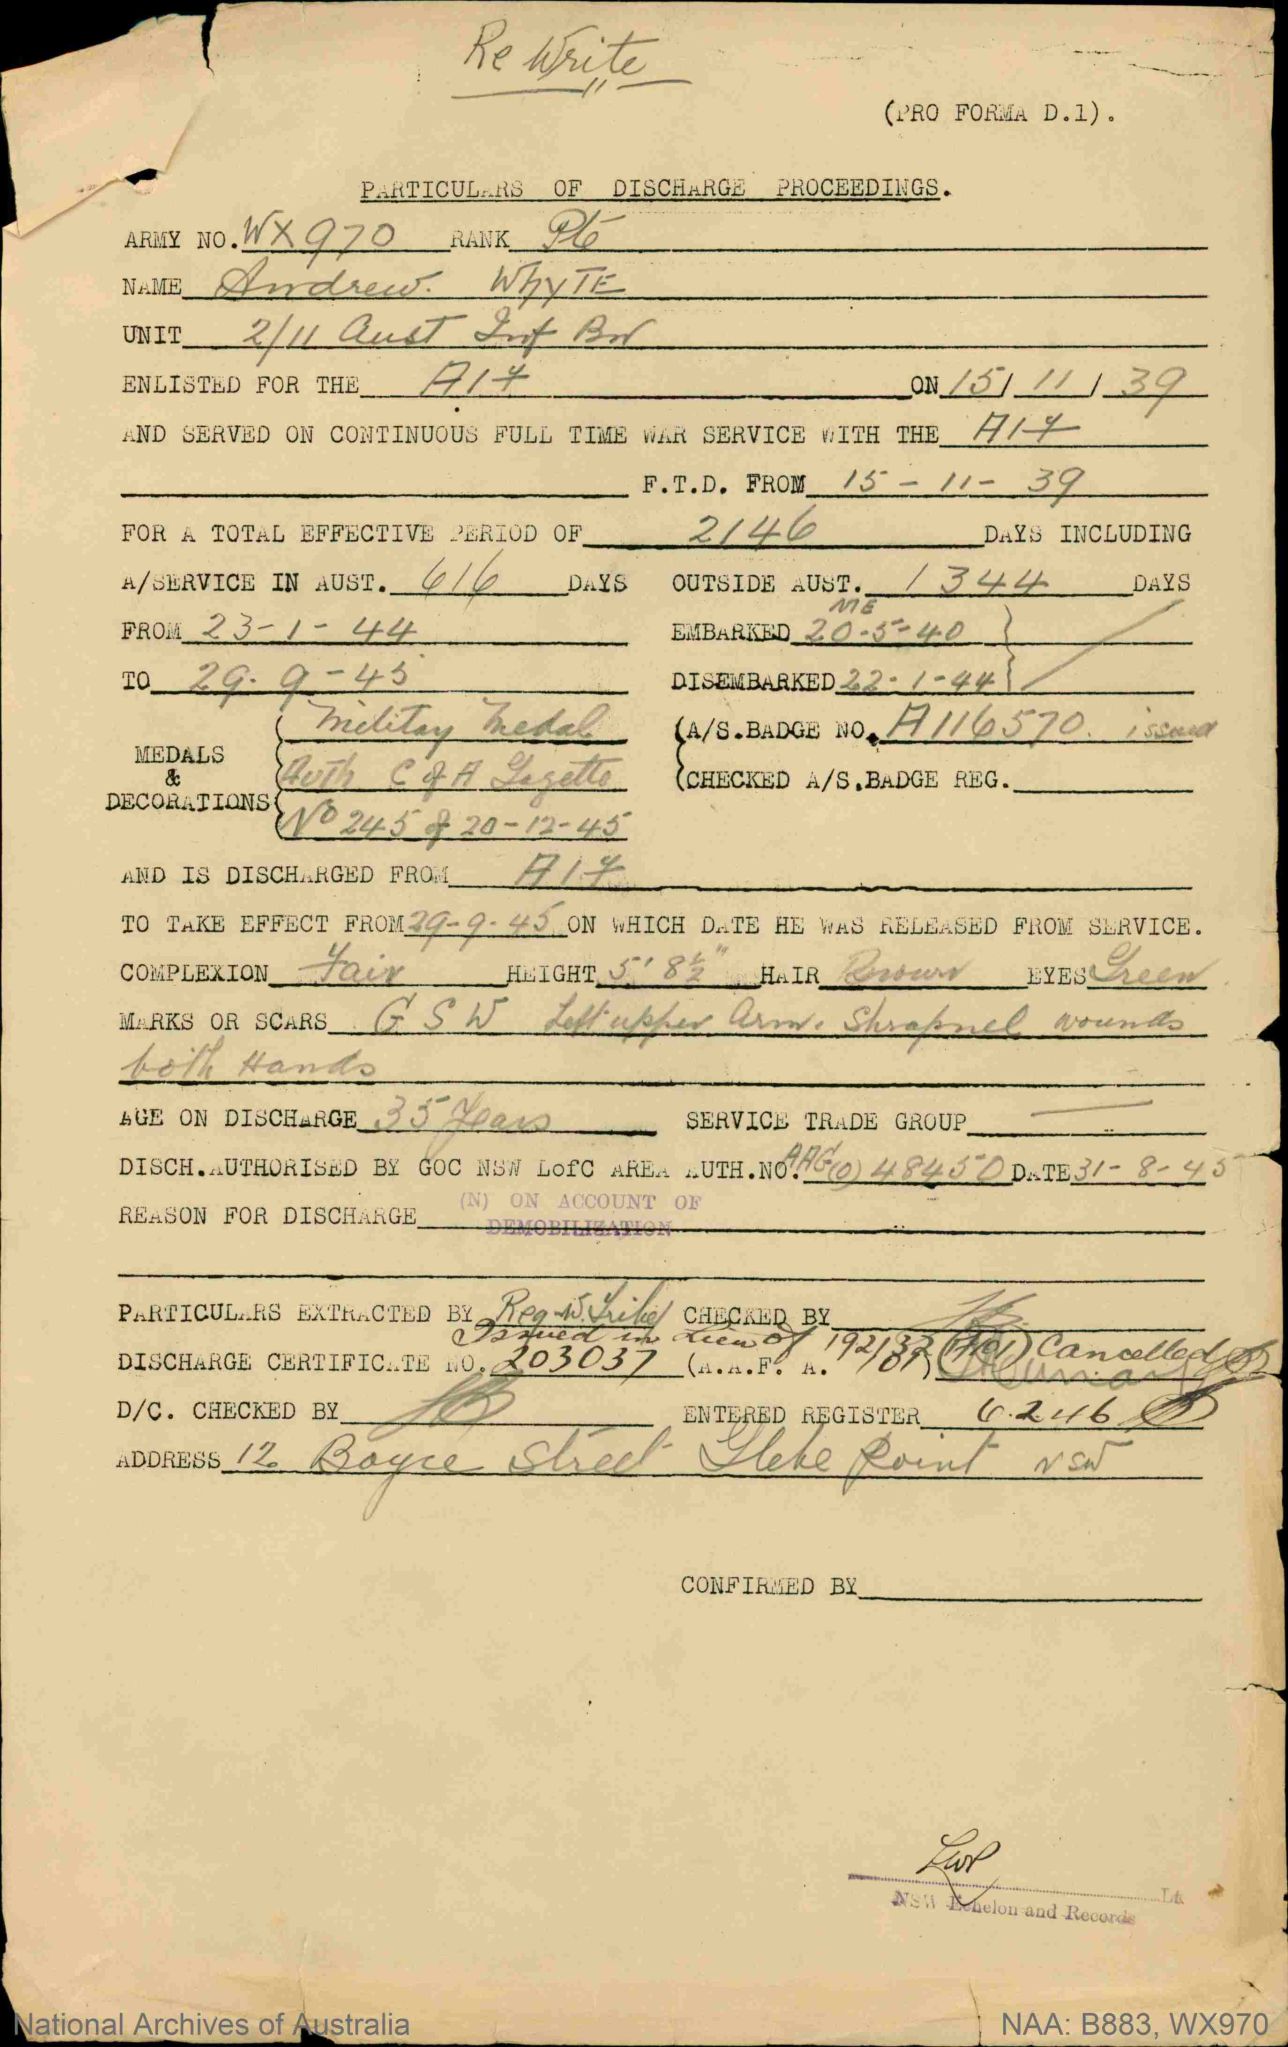 Re Write
(PRO FORMA D.1).
PARTICULARS OF DISCHARGE PROCEEDINGS.
ARMY NO. WX970 RANK Pte
NAME Andrew. WhyTE
UNIT 2/11 Aust Inf Bn
ENLISTED FOR THE AIF ON 15/ 11 / 39
AND SERVED ON CONTINUOUS FULL TIME WAR SERVICE WITH THE AIF
F.T.D. FROM 15 - 11 - 39
FOR A TOTAL EFFECTIVE PERIOD OF 2146 DAYS INCLUDING
A/SERVICE IN AUST. 616 DAYS OUTSIDE AUST. 1344 DAYS
ME
FROM 23-1-44 EMBARKED 20-5-40
TO 29-9-45 DISEMBARKED 22-1-44
MEDALS & DECORATIONS
Military Medal
Auth C of A Gazette
No 245 of 20-12-45
(A/S.BADGE NO. A116570. issued
(CHECKED A/S.BADGE REG.
AND IS DISCHARGED FROM AIF
TO TAKE EFFECT FROM 29-9-45 ON WHICH DATE HE WAS RELEASED FROM SERVICE.
COMPLEXION Fair HEIGHT 5' 8½" HAIR Brown EYES Green
MARKS OR SCARS G S W Left upper Arm. Shrapnel wounds
both Hands
AGE ON DISCHARGE 35 Years SERVICE TRADE GROUP —
DISCH.AUTHORISED BY GOC NSW LofC AREA AUTH.NO. AAG(O) 48450 DATE 31-8-45
(N) ON ACCOUNT OF
REASON FOR DISCHARGE DEMOBILIZATION
PARTICULARS EXTRACTED BY CHECKED BY
Issued in Lieu of 192132 Cancelled
DISCHARGE CERTIFICATE NO. 203037 (A.A.F. A.
D/C. CHECKED BY ENTERED REGISTER 6.2.46
ADDRESS 12 Boyce Street Glebe Point NSW
CONFIRMED BY
Lt
NSW Echelon and Records
National Archives of Australia
NAA: B883, WX970